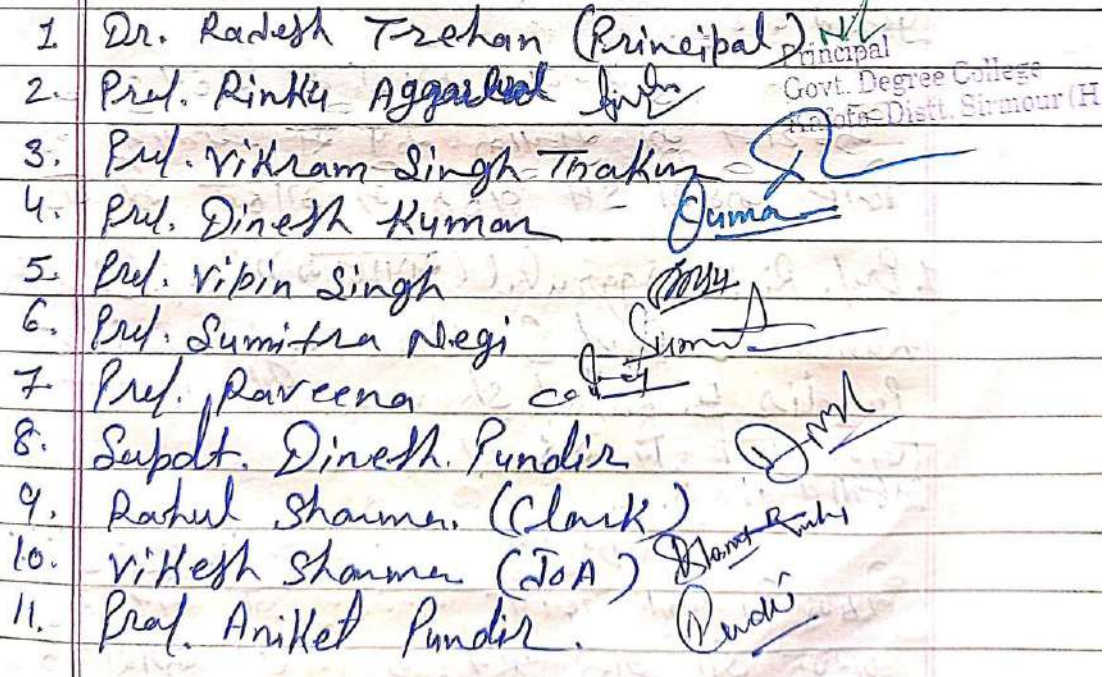 1. Dr. Radesh Trehan (Principal)
Principal
Govt. Degree College
Kafota Distt. Sirmour (H
2. Prof. Rinku Aggarwal
3. Prof. Vikram Singh Thakur
4. Prof. Dinesh Kumar Kumar
5. Prof. Vipin Singh
6. Prof. Sumitra Negi Sumit
7. Prof. Raveena
8. Supdt. Dinesh Pundir
9. Rahul Sharma. (Clerk)
10. Vikesh Sharma (JOA)
11. Prof. Aniket Pundir.